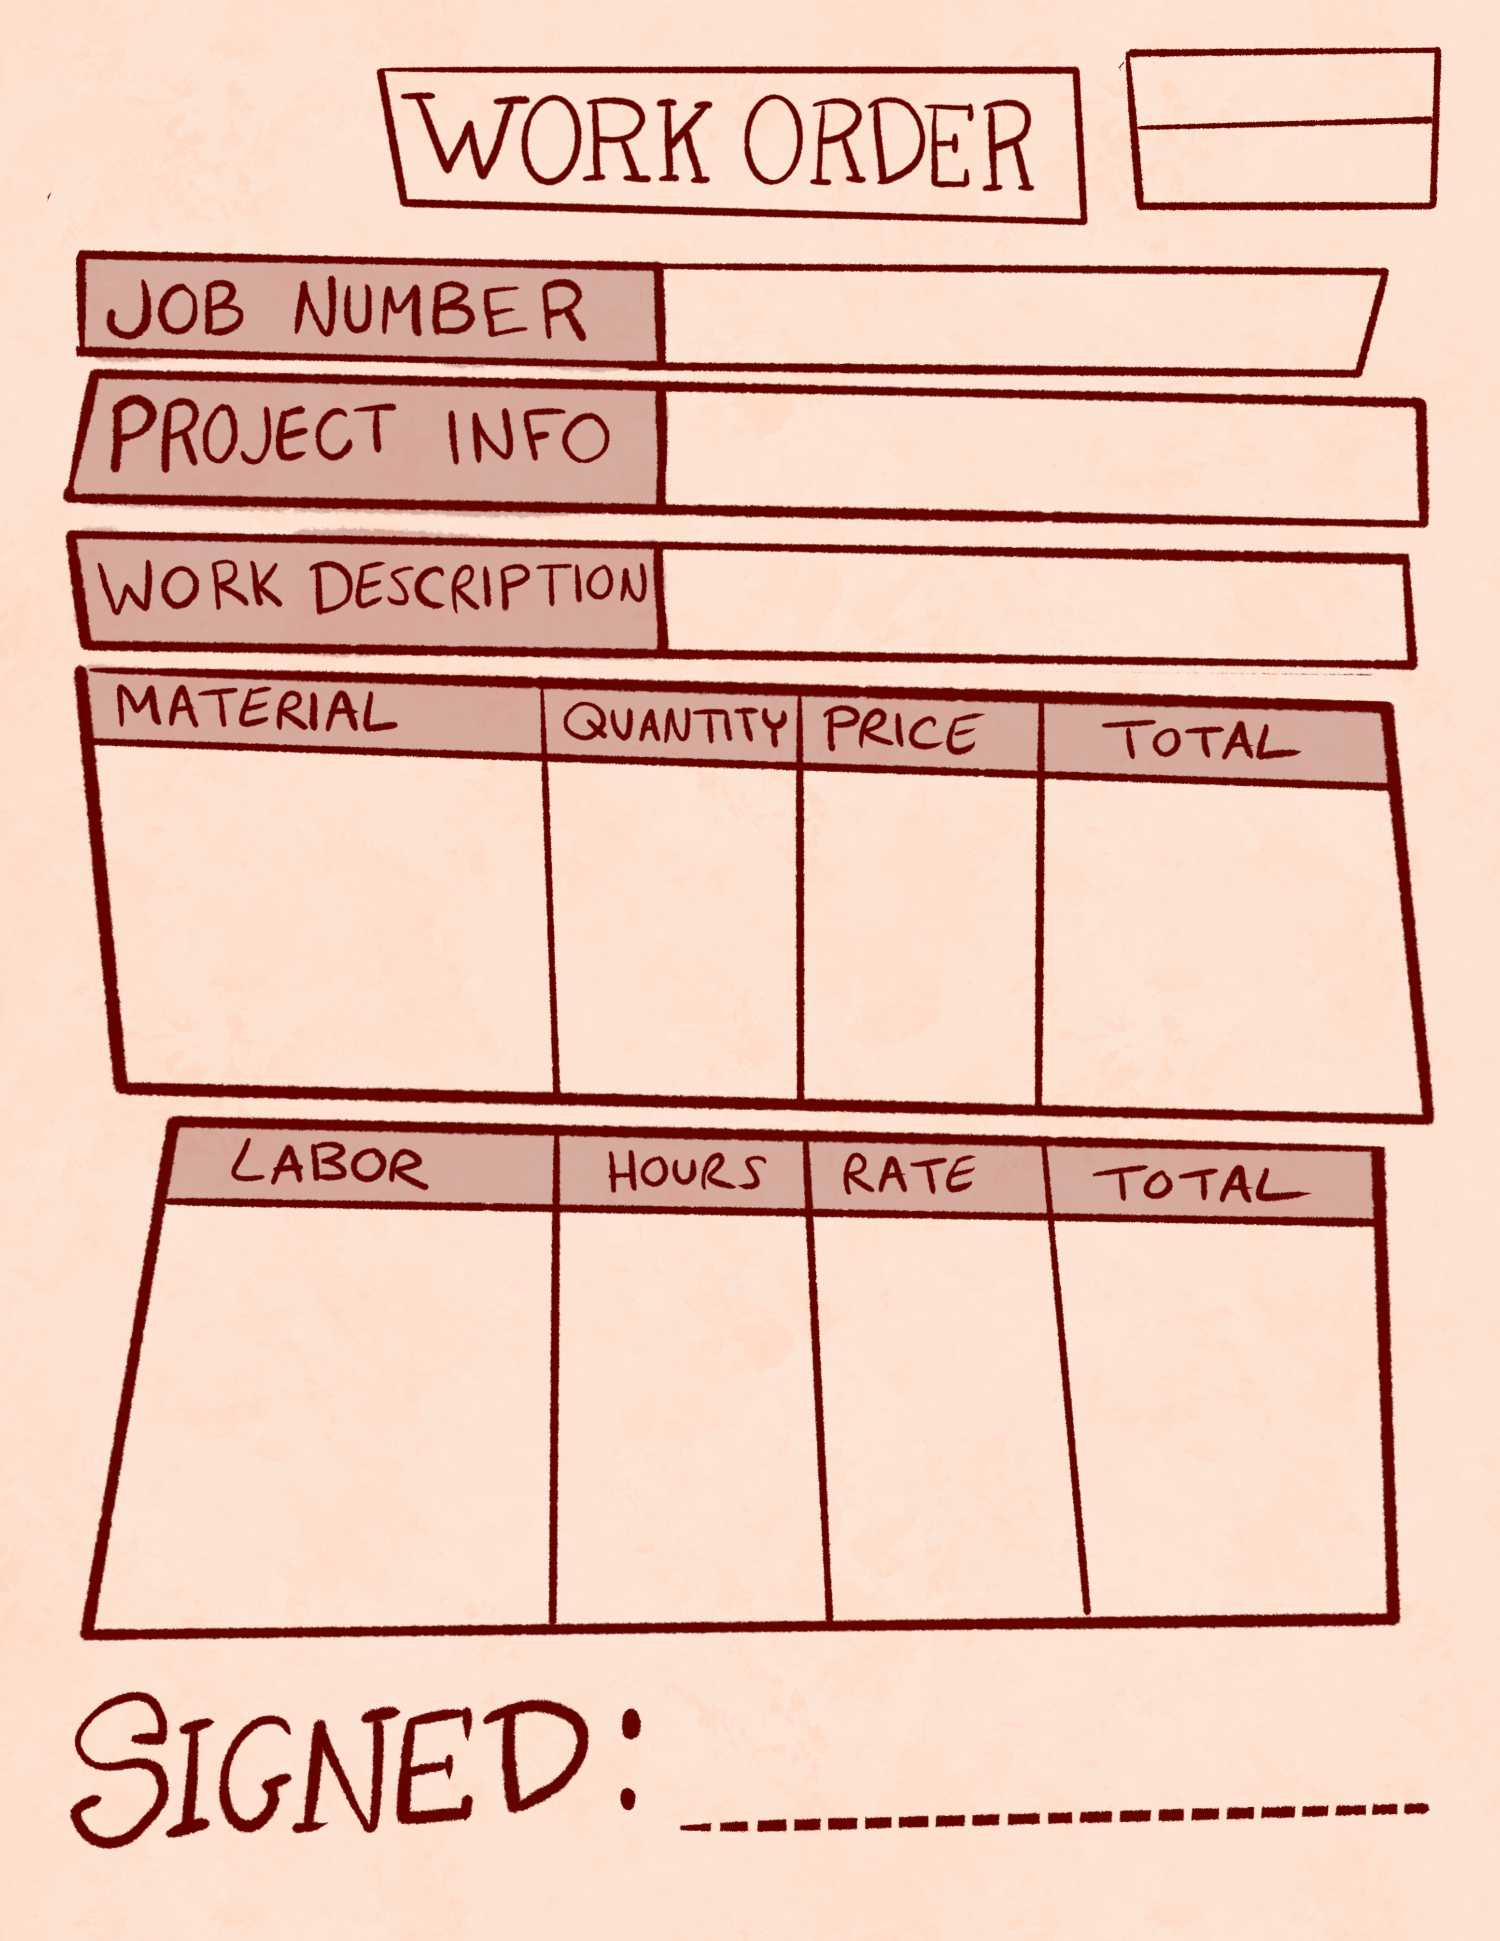 WORK ORDER
JOB NUMBER
PROJECT INFO
WORK DESCRIPTION
MATERIAL QUANTITY PRICE TOTAL
LABOR HOURS RATE TOTAL
SIGNED: